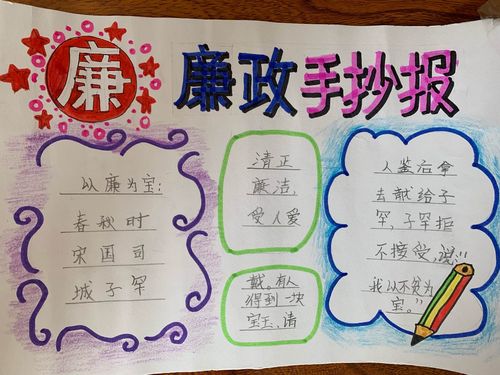 廉
廉政手抄报
以廉为宝:
春秋时
宋国司
城子罕
清正
廉洁,
受人爱
戴。有人
得到一块
宝玉,请
人鉴后拿
去献给子
罕,子罕拒
不接受,说:“
我以不贪为
宝。”